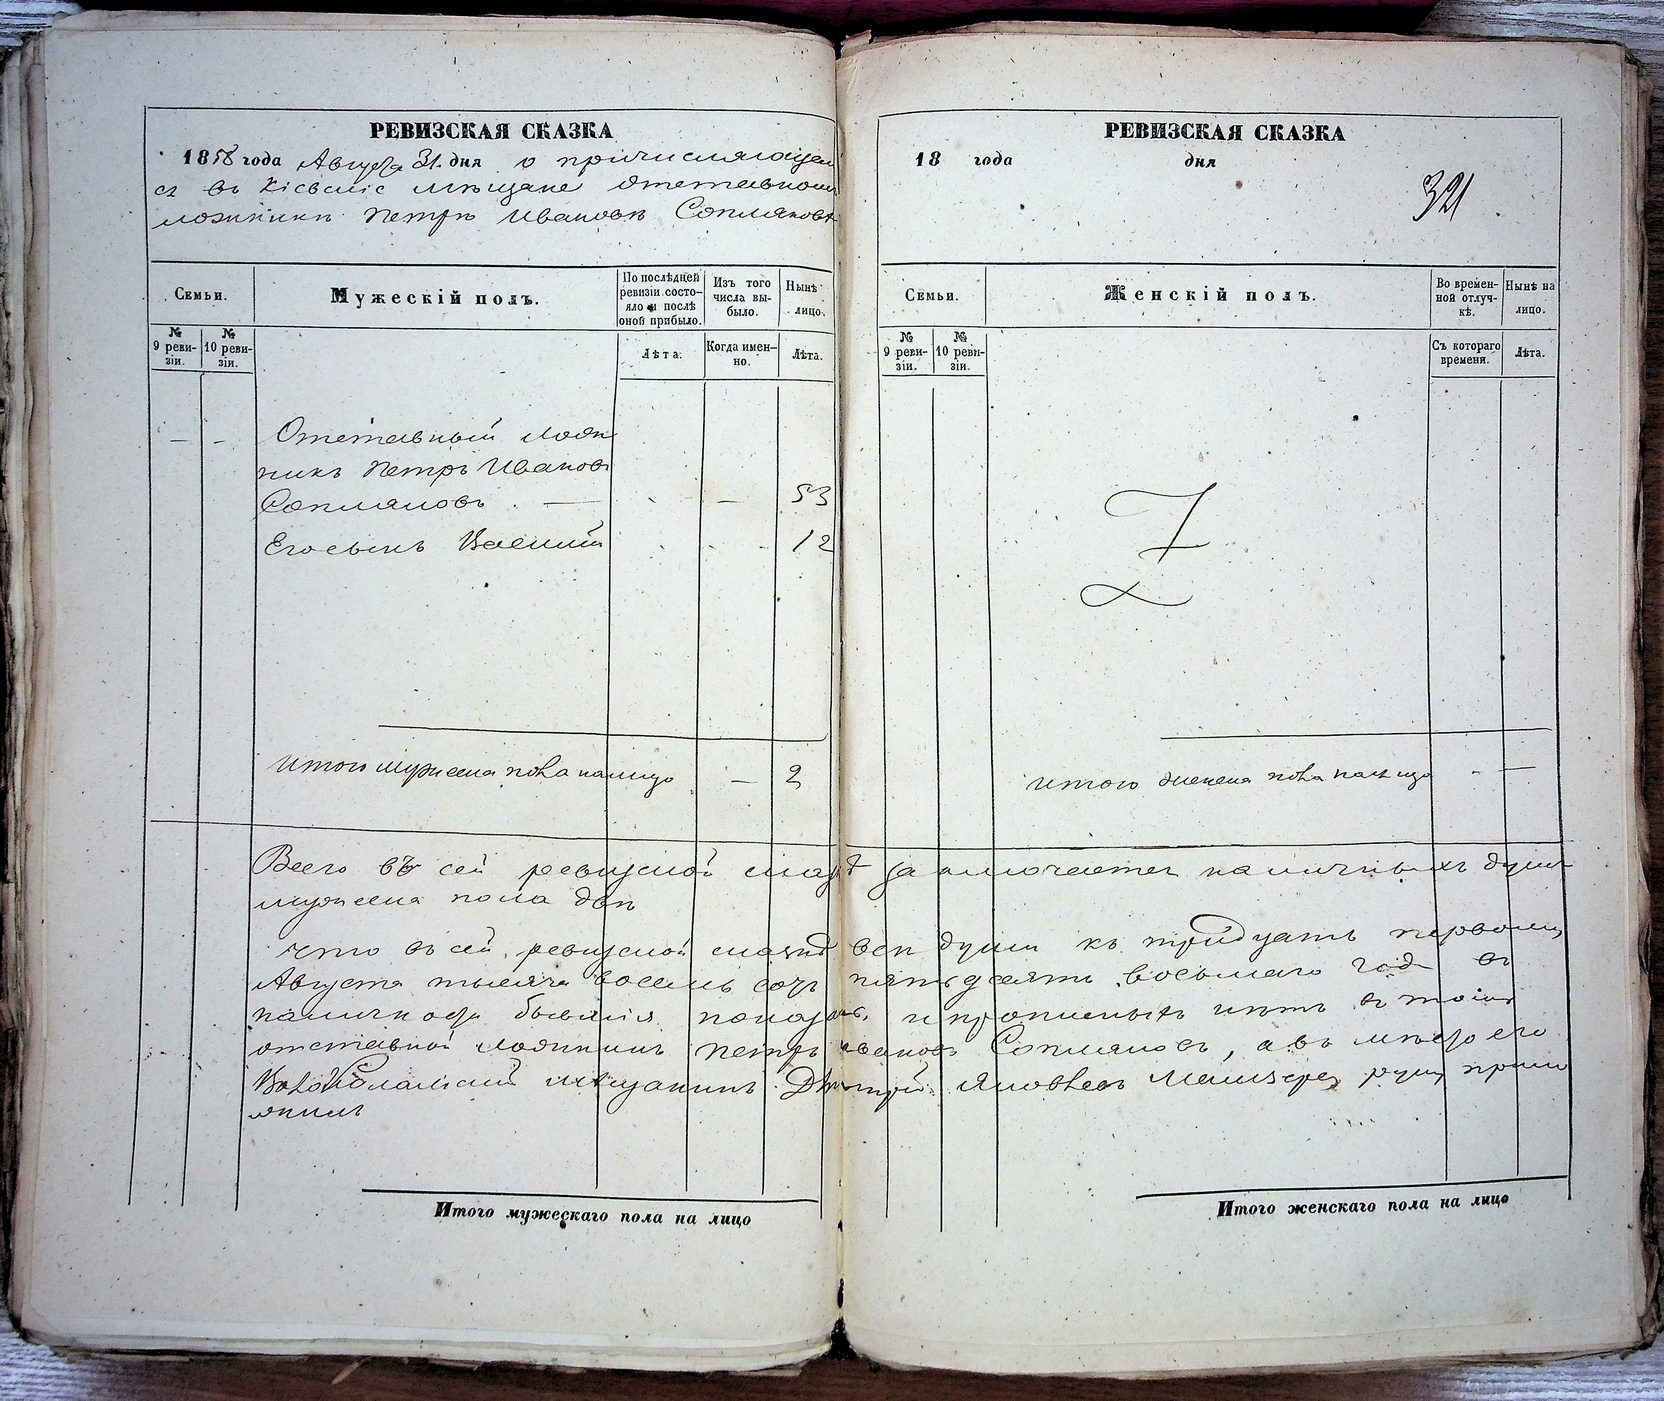 РЕВИЗСКАЯ СКАЗКА
1858 года Августа 31 дня о причисляющем
ся въ Кіевскіе мѣщане Отставномъ
Петрѣ Ивановѣ Сопляковѣ
Семьи.
Мужескій полъ.
По послѣдней ревизіи состо-
яло и послѣ
оной прибыло.
Изъ того
числа вы-
было.
Нынѣ
лицо.
№
9 реви-
зіи.
№
10 реви-
зіи.
Лѣта.
Когда имен-
но.
Лѣта.
Отставный
Петръ Ивановъ
Сопляковъ — — 53
Его сынъ Василій 12
Итого мужска пола налицо — 2
РЕВИЗСКАЯ СКАЗКА
18 года дня
321
Семьи.
Женскій полъ.
Во времен-
ной отлуч-
кѣ.
Нынѣ на
лицо.
№
9 реви-
зіи.
№
10 реви-
зіи.
Съ котораго
времени.
Лѣта.
Итого женска пола налицо —
Всего въ сей ревизской сказкѣ заключается наличныхъ душъ
мужска пола двѣ
Что въ сей ревизской сказкѣ всѣ души къ тридцать первому
Августа тысяча восемь сотъ пятьдесятъ восьмаго года въ
показаны, и прописныхъ нѣтъ въ томъ
отставной Петръ Ивановъ Сопляковъ, а вмѣсто его
мѣщанинъ Дмитрій Яковлевъ руку прило
жилъ
Итого мужескаго пола на лицо
Итого женскаго пола на лицо